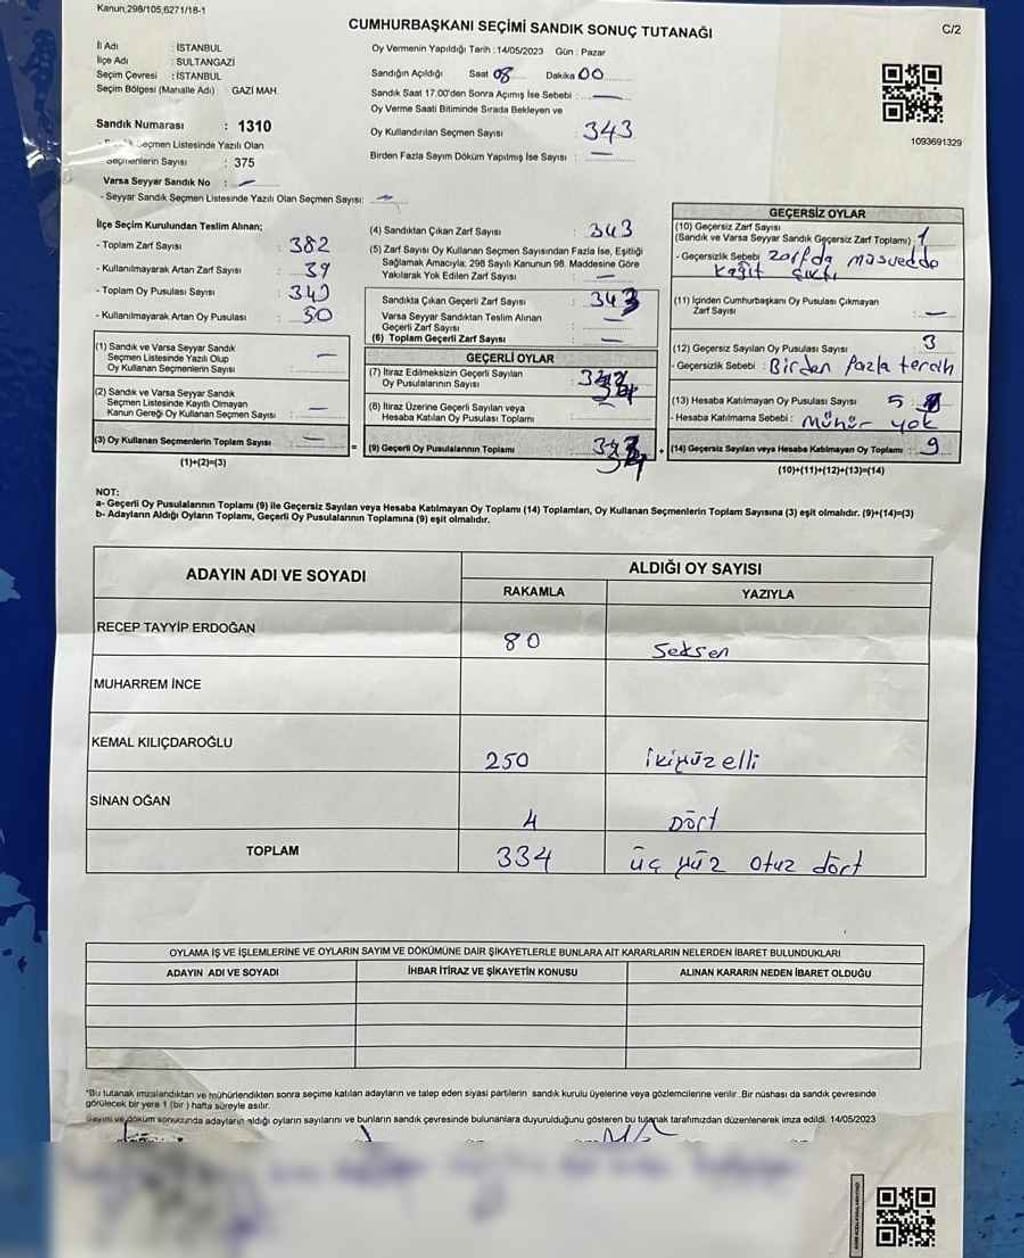 Kanun,298/105,6271/18-1
CUMHURBAŞKANI SEÇİMİ SANDIK SONUÇ TUTANAĞI
C/2
İl Adı : İSTANBUL
İlçe Adı : SULTANGAZİ
Seçim Çevresi : İSTANBUL
Seçim Bölgesi (Mahalle Adı) GAZİ MAH.
Sandık Numarası : 1310
Seçmen Listesinde Yazılı Olan
Seçmenlerin Sayısı : 375
Varsa Seyyar Sandık No : —
- Seyyar Sandık Seçmen Listesinde Yazılı Olan Seçmen Sayısı: —
Oy Vermenin Yapıldığı Tarih : 14/05/2023 Gün : Pazar
Sandığın Açıldığı Saat 08 Dakika 00
Sandık Saat 17.00'den Sonra Açımış İse Sebebi : —
Oy Verme Saati Bitiminde Sırada Bekleyen ve
Oy Kullandırılan Seçmen Sayısı : 343
Birden Fazla Sayım Döküm Yapılmış İse Sayısı : —
1093691329
İlçe Seçim Kurulundan Teslim Alınan;
- Toplam Zarf Sayısı : 382
- Kullanılmayarak Artan Zarf Sayısı : 39
- Toplam Oy Pusulası Sayısı :
- Kullanılmayarak Artan Oy Pusulası : 50
(1) Sandık ve Varsa Seyyar Sandık
Seçmen Listesinde Yazılı Olup
Oy Kullanan Seçmenlerin Sayısı : —
(2) Sandık ve Varsa Seyyar Sandık
Seçmen Listesinde Kayıtlı Olmayan
Kanun Gereği Oy Kullanan Seçmen Sayısı : —
(3) Oy Kullanan Seçmenlerin Toplam Sayısı : —
(1)+(2)=(3)
(4) Sandıktan Çıkan Zarf Sayısı : 343
(5) Zarf Sayısı Oy Kullanan Seçmen Sayısından Fazla İse, Eşitliği
Sağlamak Amacıyla; 298 Sayılı Kanunun 98. Maddesine Göre
Yakılarak Yok Edilen Zarf Sayısı : —
Sandıkta Çıkan Geçerli Zarf Sayısı : 343
Varsa Seyyar Sandıktan Teslim Alınan
Geçerli Zarf Sayısı : —
(6) Toplam Geçerli Zarf Sayısı : —
GEÇERLİ OYLAR
(7) İtiraz Edilmeksizin Geçerli Sayılan
Oy Pusulalarının Sayısı :
(8) İtiraz Üzerine Geçerli Sayılan veya
Hesaba Katılan Oy Pusulası Toplamı : —
= (9) Geçerli Oy Pusulalarının Toplamı :
GEÇERSİZ OYLAR
(10) Geçersiz Zarf Sayısı
(Sandık ve Varsa Seyyar Sandık Geçersiz Zarf Toplamı) : 1
- Geçersizlik Sebebi : zarfda müsvedde
kağıt çıktı
(11) İçinden Cumhurbaşkanı Oy Pusulası Çıkmayan
Zarf Sayısı : —
(12) Geçersiz Sayılan Oy Pusulası Sayısı : 3
- Geçersizlik Sebebi : Birden fazla tercih
(13) Hesaba Katılmayan Oy Pusulası Sayısı : 5
- Hesaba Katılmama Sebebi : Mühür yok
+ (14) Geçersiz Sayılan veya Hesaba Katılmayan Oy Toplamı : 9
(10)+(11)+(12)+(13)=(14)
NOT:
a- Geçerli Oy Pusulalarının Toplamı (9) ile Geçersiz Sayılan veya Hesaba Katılmayan Oy Toplamı (14) Toplamları, Oy Kullanan Seçmenlerin Toplam Sayısına (3) eşit olmalıdır. (9)+(14)=(3)
b- Adayların Aldığı Oyların Toplamı, Geçerli Oy Pusulalarının Toplamına (9) eşit olmalıdır.
ADAYIN ADI VE SOYADI
ALDIĞI OY SAYISI
RAKAMLA YAZIYLA
RECEP TAYYİP ERDOĞAN 80 Seksen
MUHARREM İNCE
KEMAL KILIÇDAROĞLU 250 ikiyüzelli
SİNAN OĞAN 4 Dört
TOPLAM 334 üç yüz otuz dört
OYLAMA İŞ VE İŞLEMLERİNE VE OYLARIN SAYIM VE DÖKÜMÜNE DAİR ŞİKAYETLERLE BUNLARA AİT KARARLARIN NELERDEN İBARET BULUNDUKLARI
ADAYIN ADI VE SOYADI İHBAR İTİRAZ VE ŞİKAYETİN KONUSU ALINAN KARARIN NEDEN İBARET OLDUĞU
*Bu tutanak imzalandıktan ve mühürlendikten sonra seçime katılan adayların ve talep eden siyasi partilerin sandık kurulu üyelerine veya gözlemcilerine verilir. Bir nüshası da sandık çevresinde
görülecek bir yere 1 (bir) hafta süreyle asılır.
Sayım ve döküm sonucunda adayların aldığı oyların sayılarını ve bunların sandık çevresinde bulunanlara duyurulduğunu gösteren bu tutanak tarafımızdan düzenlenerek imza edildi. 14/05/2023